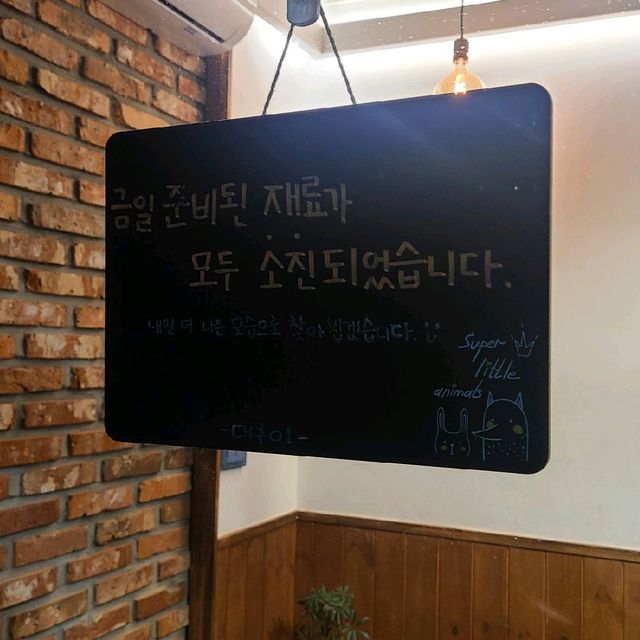 금일 준비된 재료가
모두 소진되었습니다.
내일 더 나은 모습으로 찾아 뵙겠습니다. :)
Super
little
animals